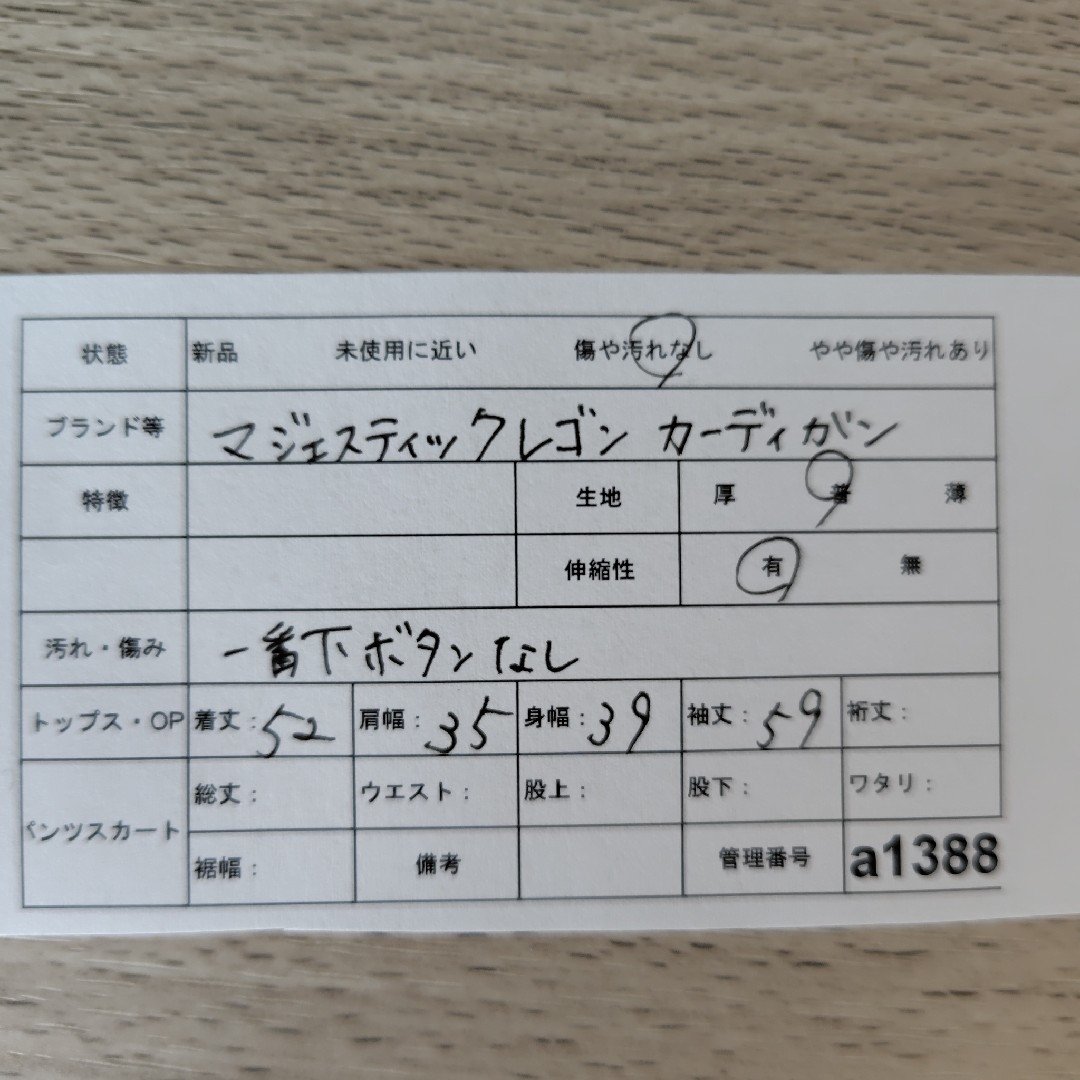 状態 新品 未使用に近い 傷や汚れなし やや傷や汚れあり
ブランド等 マジェスティックレゴン カーディガン
特徴 生地 厚 普 薄
伸縮性 有 無
汚れ・傷み 一番下ボタンなし
トップス・OP 着丈:52 肩幅:35 身幅:39 袖丈:59 裄丈:
パンツスカート 総丈: ウエスト: 股上: 股下: ワタリ:
裾幅: 備考 管理番号 a1388